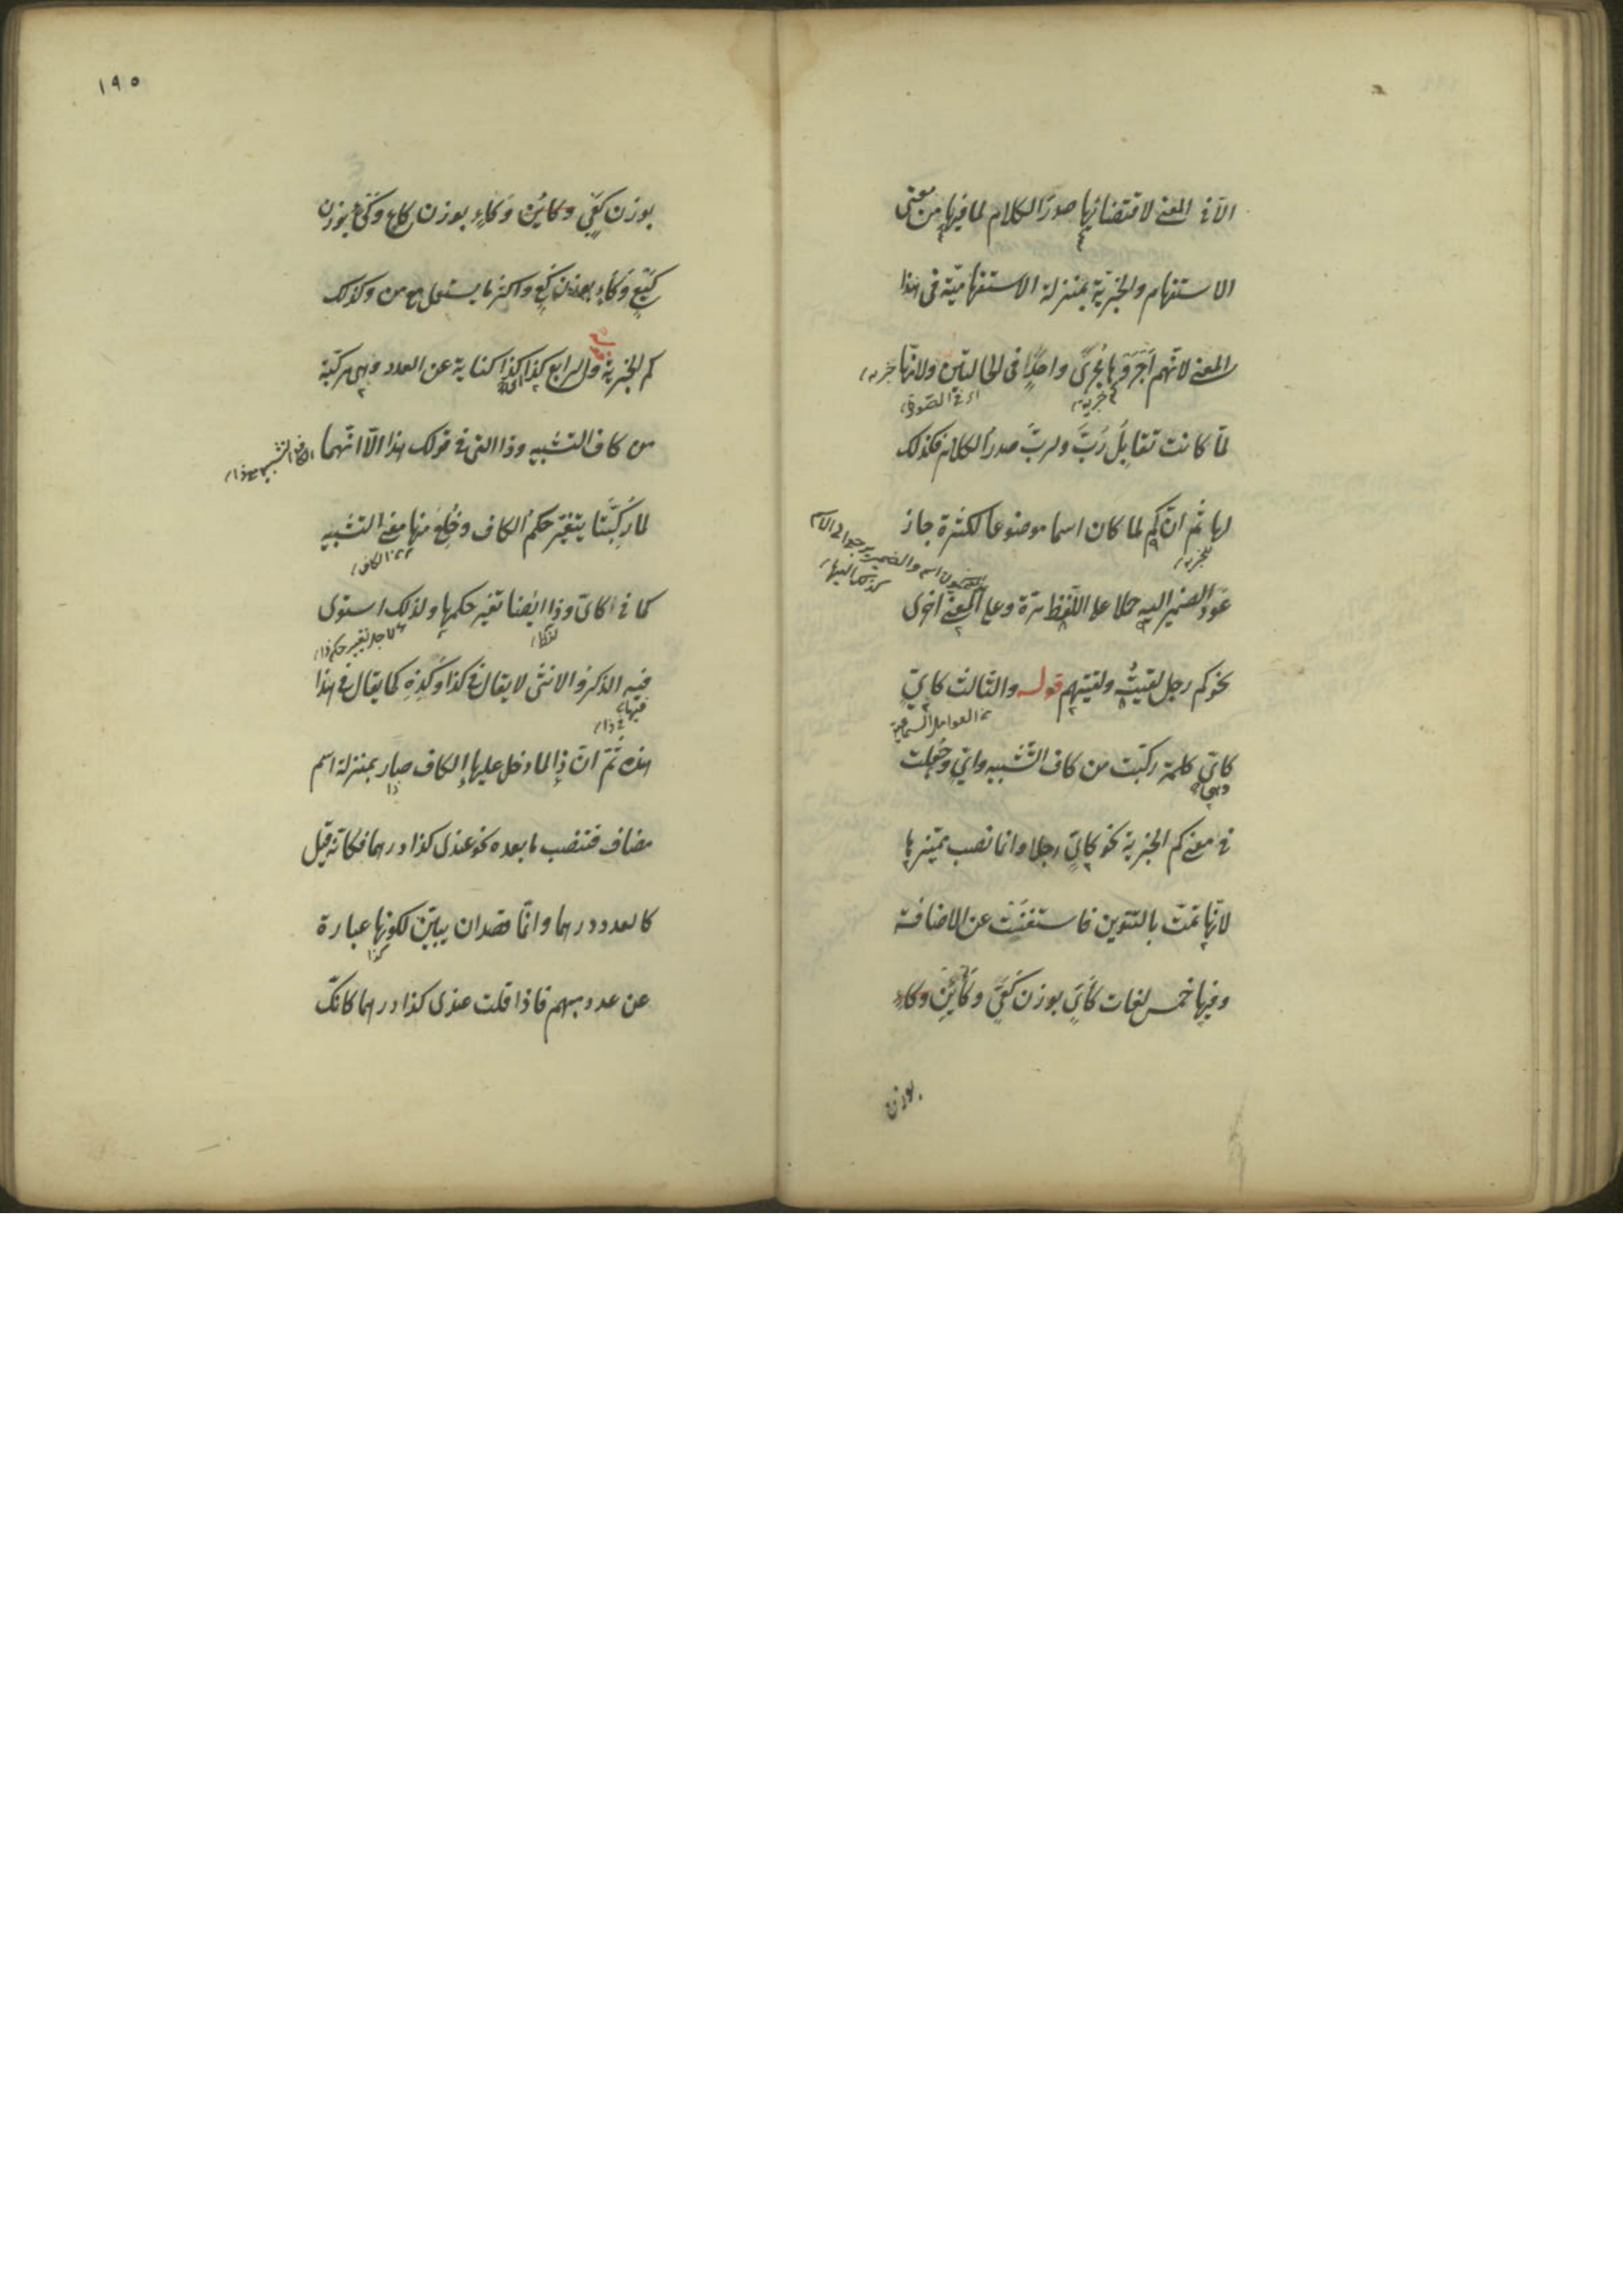 الا فى المعنى لاقتضائها صدر الكلام لما فيها من معنى
الاستفهام والخبريّة بمنزلة الاستفهاميّة فى هذا
المعنى لانّهم اَجْرَوْها مُجْرًى واحدًا فى الحالتين ولانّها خبرية
خبرية
لمّا كانت تقابِلُ رُبَّ ولربَّ صدرُ الكلام فكذلك
لها ثمّ انّ كم لما كان اسما موضوعا لكثرة جاز
الخبرية
عَوْد الضمير اليه حملا على اللّفظ مرّة وعلى المعنى اخرى
نحو كم رجل لقيتُه ولقيتهم قوله والثالث كايٍّ
العوامل السماعية
كايٍّ كلمة ركّبت من كاف التّشبيه وايٍّ وجُعلت
وهى
فى معنى كم الخبرية نحو كايٍّ رجلا وانما نصب مميّزها
لانّها تمّت بالتنوين فاستغنَتْ عن الاضافة
وفيها خمس لغات كَأيٍّ بوزن كَعَيٍّ وكَأْيِنْ وكاءٍ
بوزن
١٩٥
بوزن كَعَيٍّ وكايِنْ وكاءٍ بوزن كاعٍ وكَيْءٍ بوزن
كَيْعٍ وكَاءٍ بوزن كَعٍ واكثر ما يستعمل مع من وكذلك
كم الخبرية والرابع كذا كذا كناية عن العدد وهى مركّبة
من كاف التشبيه وذا التى فى قولك هذا الّا انّهما
لمّا رُكِّبَتا يتغيّر حكمُ الكاف وخُلِعَ منها معنى التشبيه
الكاف
كما فى كاىّ وذا ايضا تغيّر حكمها ولذلك استوى
لاجل تغيير حكم ذا
فيه الذكر والانثى لا يقال فى كذا وكَذِهِ كما يقال فى هذا
فيها
هذه ثُمّ انّ ذا لما دخل عليها الكاف صار بمنزلة اسم
ذا
مضاف فتنصب ما بعده نحو عندى كذا درهما فكانّه قيل
كالعدد درهما وانّما قصد ان يبيّن لكونها عبارة
كذا
عن عدد مبهم فاذا قلت عندى كذا درهما كانّك